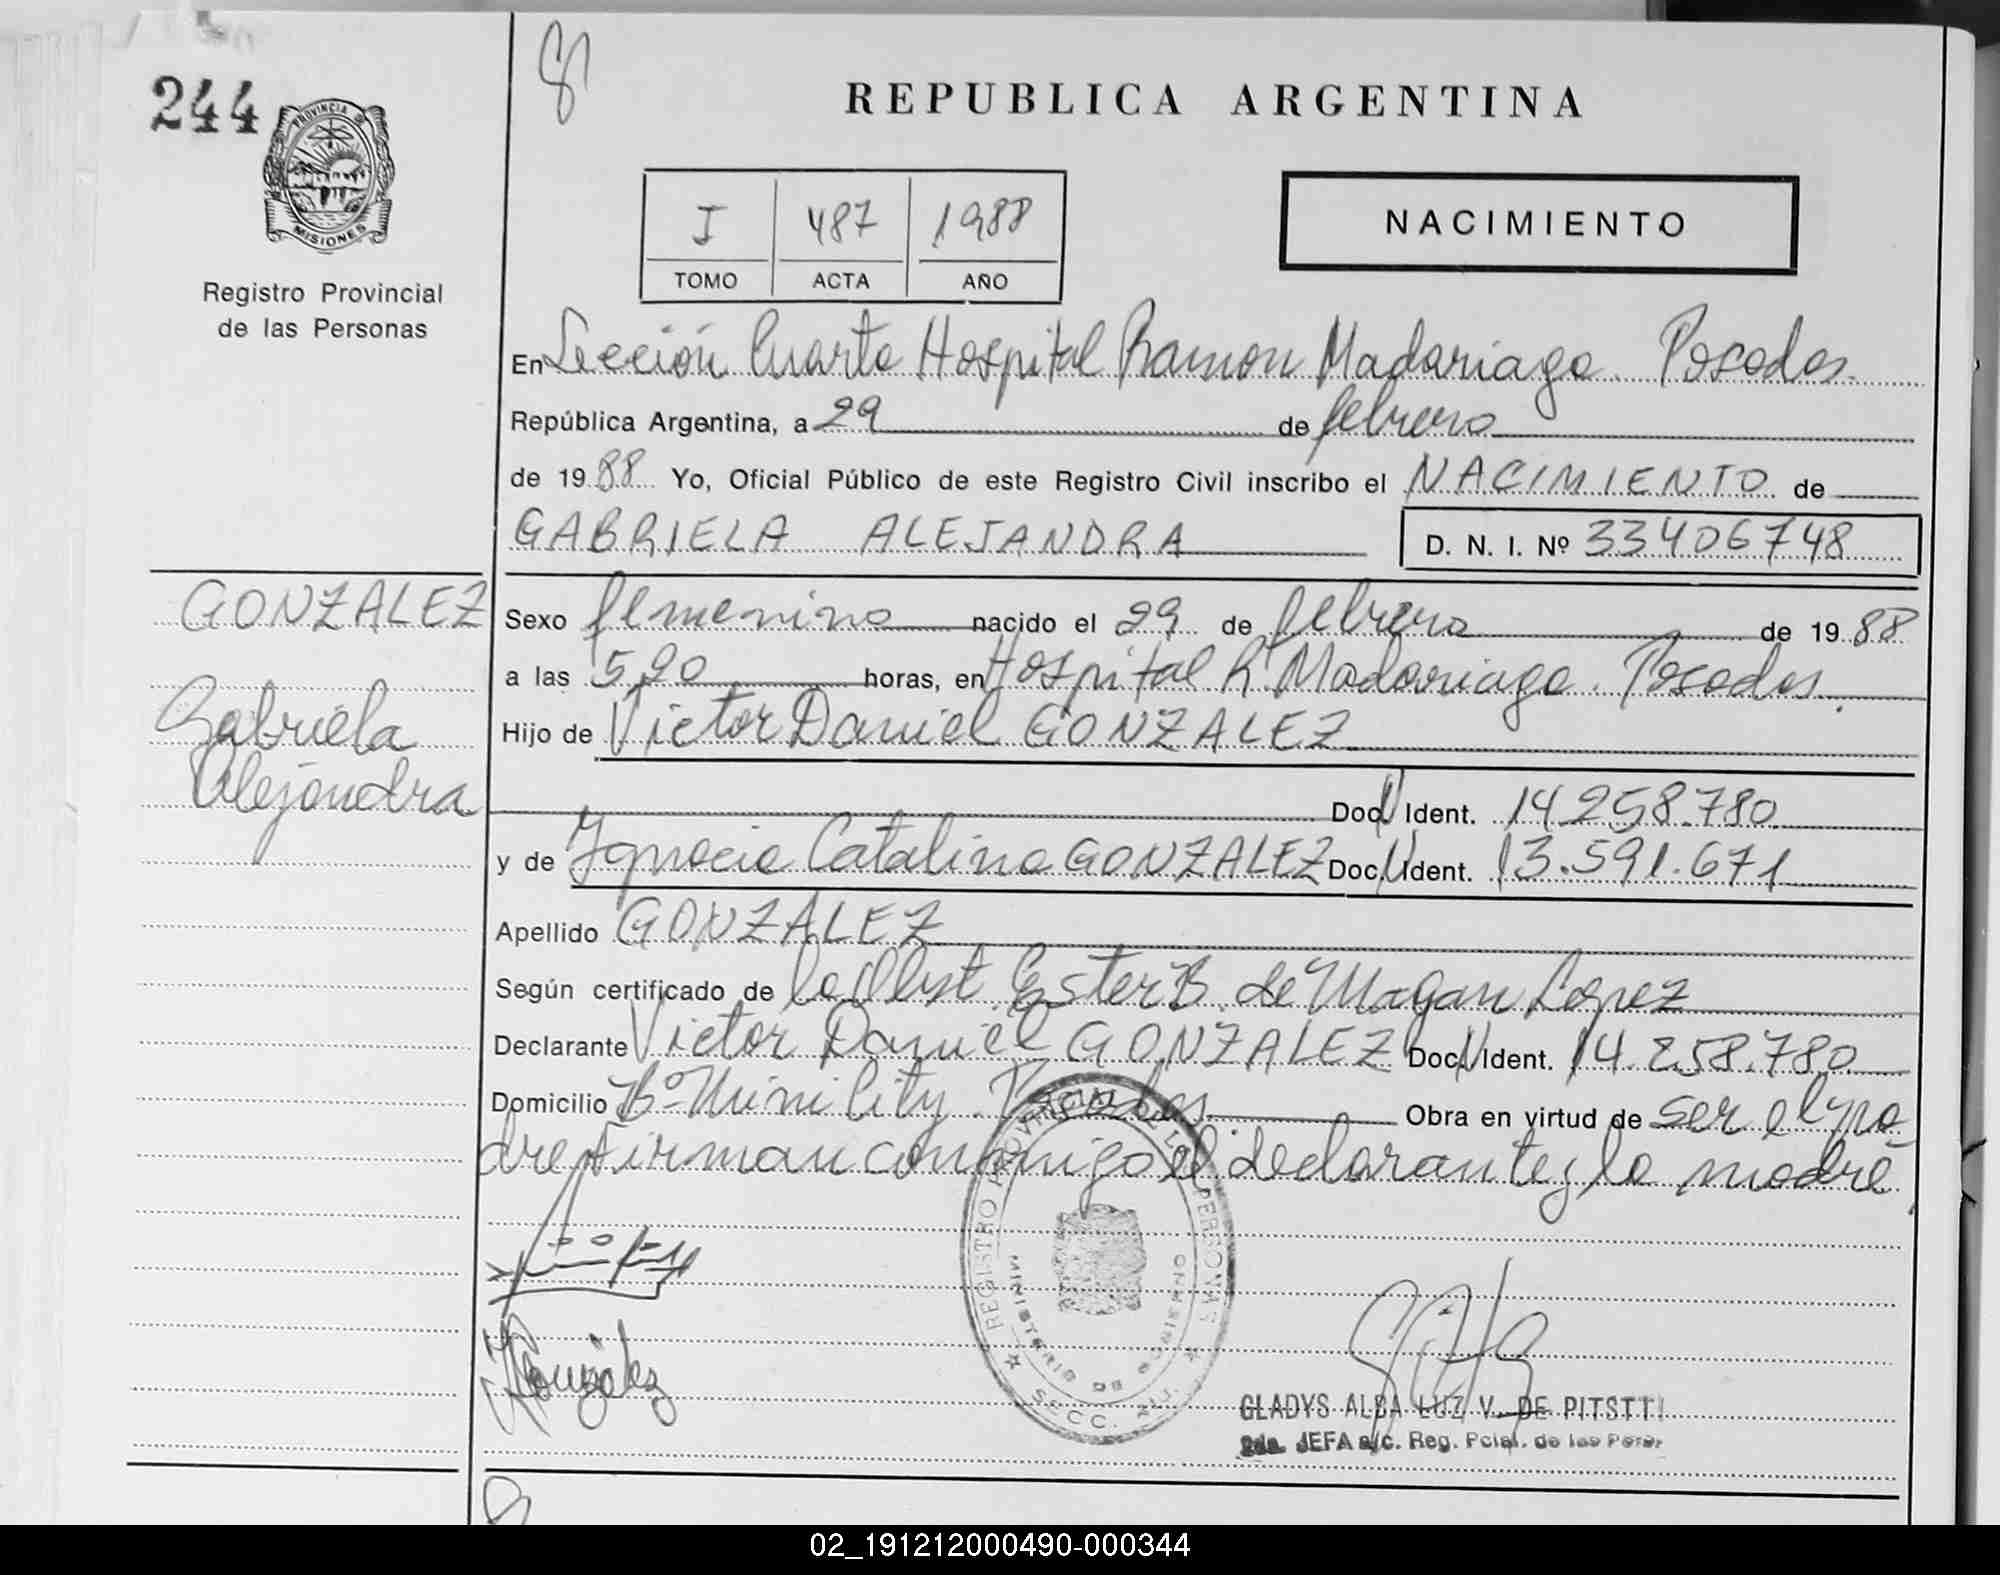 244
PROVINCIA DE
MISIONES
Registro Provincial
de las Personas
REPUBLICA ARGENTINA
I 487 1988
TOMO ACTA AÑO
NACIMIENTO
En Sección Cuarta Hospital Ramon Madariaga. Posadas.
República Argentina, a 29 de febrero
de 1988 Yo, Oficial Público de este Registro Civil inscribo el NACIMIENTO de
GABRIELA ALEJANDRA D. N. I. Nº 33406748
GONZALEZ
Gabriela
Alejandra
Sexo femenino nacido el 29 de febrero de 1988
a las 5,20 horas, en Hospital R. Madariaga. Posadas.
Hijo de Victor Daniel GONZALEZ
Doc. Ident. 14.258.780
y de Ignacia Catalina GONZALEZ Doc. Ident. 13.591.671
Apellido GONZALEZ
Según certificado de la Obst. Ester B. de Magan Lopez
Declarante Victor Daniel GONZALEZ Doc. Ident. 14.258.780
Domicilio Bº Mini City. Posadas. Obra en virtud de ser el pa-
dre firman conmigo el declarante y la madre
REGISTRO PROVINCIAL DE LAS PERSONAS
MINISTERIO DE GOBIERNO
SECC.
González
GLADYS ALBA LUZ V. DE PITSTTI
2da. JEFA a/c. Reg. Pcial. de las Perer
02_191212000490-000344